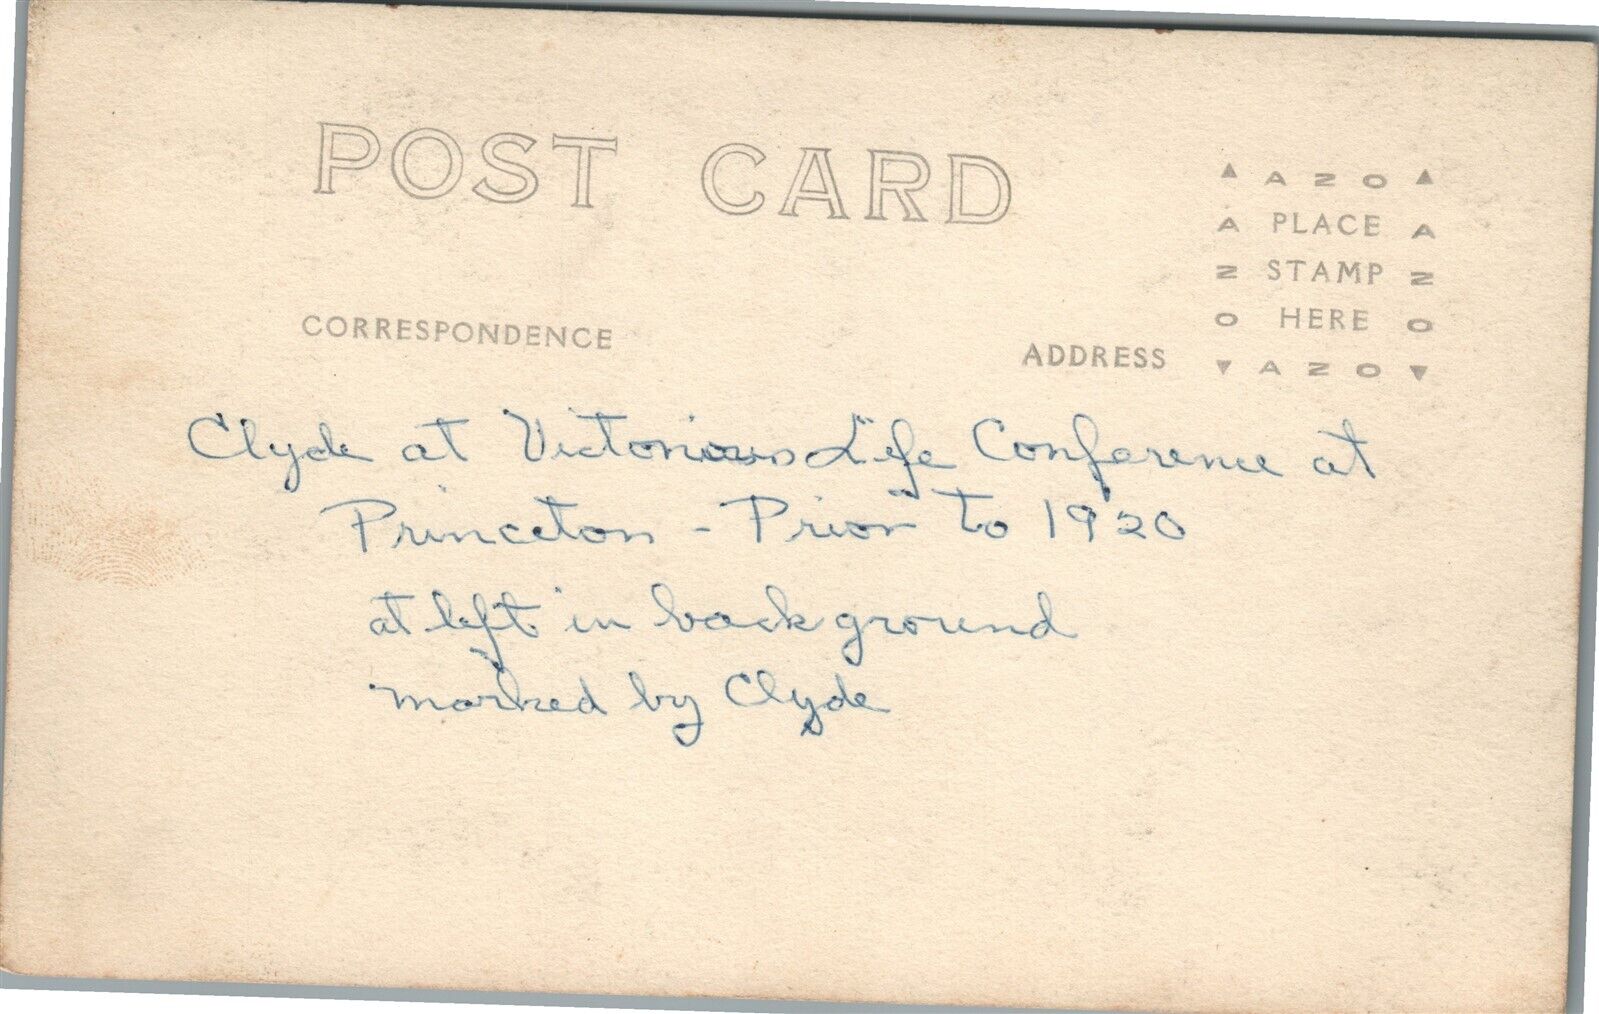 POST CARD
▲ A Z O ▲
A PLACE A
Z STAMP Z
O HERE O
▼ A Z O ▼
CORRESPONDENCE
ADDRESS
Clyde at Victorious Life Conference at
Princeton - Prior to 1920
at left in background
marked by Clyde